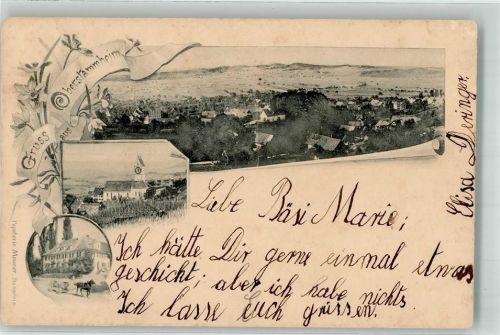 Gruss aus Oberstammheim
Elisa Deringer.
Liebe Bäsi Marie;
Ich hätte Dir gerne einmal etwas
geschickt; aber ich habe nichts.
Ich lasse Euch grüssen.
Papeterie